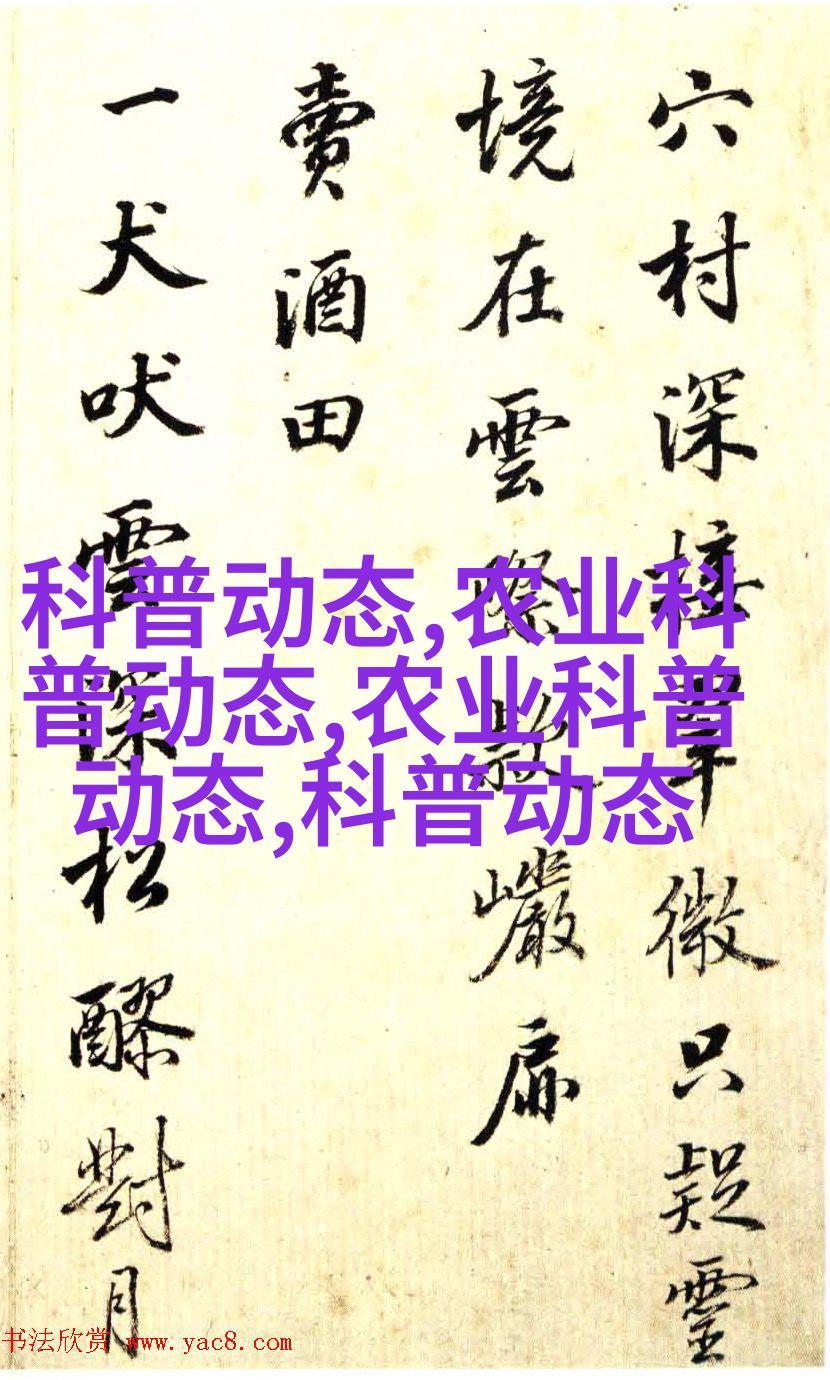 穴村深接羣微只疑靈
境在雲際敲巖扉
賣酒田
一犬吠雲深松醪對月
科普动态,农业科
普动态,农业科普
动态,科普动态
书法欣赏 www.yac8.com